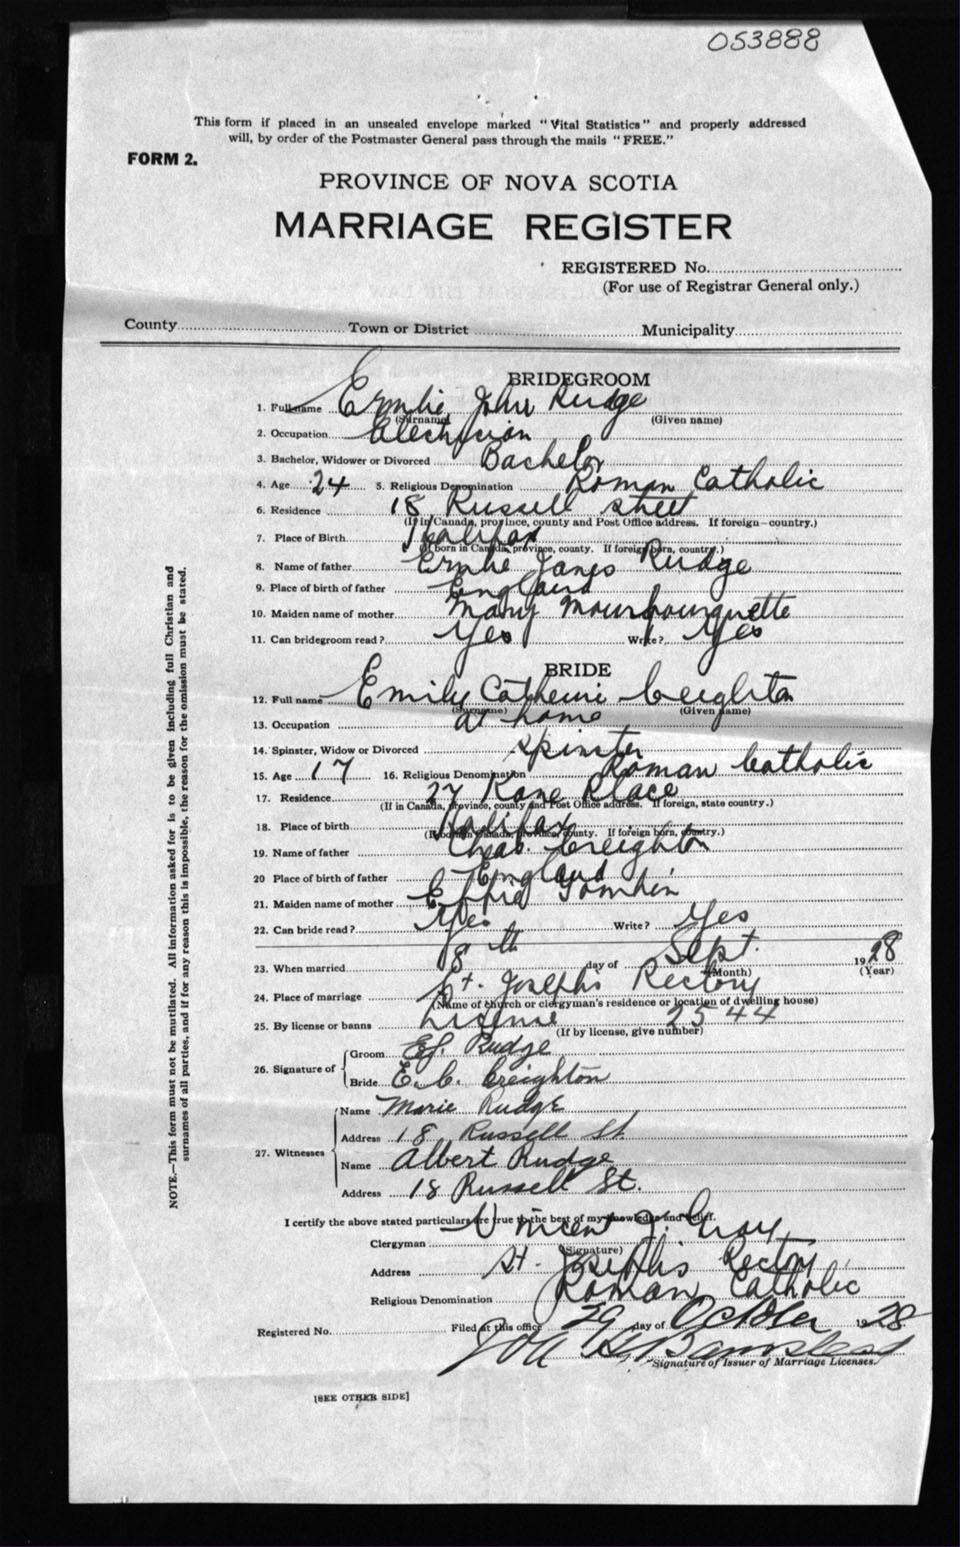 053888
This form if placed in an unsealed envelope marked "Vital Statistics" and properly addressed
will, by order of the Postmaster General pass through the mails "FREE."
FORM 2.
PROVINCE OF NOVA SCOTIA
MARRIAGE REGISTER
REGISTERED No.
(For use of Registrar General only.)
County Town or District Municipality
BRIDEGROOM
1. Full name John Rudge
(Surname) (Given name)
2. Occupation
3. Bachelor, Widower or Divorced Bachelor
4. Age 24 5. Religious Denomination Roman Catholic
6. Residence 18 Russell street
(If in Canada, province, county and Post Office address. If foreign—country.)
7. Place of Birth Halifax
(If born in Canada, province, county. If foreign born, country.)
8. Name of father James Rudge
9. Place of birth of father England
10. Maiden name of mother Mary
11. Can bridegroom read? Yes Write? Yes
BRIDE
12. Full name Emily Catherine Creighton
(Surname) (Given name)
13. Occupation at home
14. Spinster, Widow or Divorced Spinster
15. Age 17 16. Religious Denomination Roman Catholic
17. Residence 27 Kane Place
(If in Canada, province, county and Post Office address. If foreign, state country.)
18. Place of birth Halifax
(If born in Canada, province, county. If foreign born, country.)
19. Name of father Chas. Creighton
20 Place of birth of father England
21. Maiden name of mother Effie
22. Can bride read? Yes Write? Yes
23. When married 18th day of Sept. 1928
(Month) (Year)
24. Place of marriage St. Josephs Rectory
(Name of church or clergyman's residence or location of dwelling house)
25. By license or banns License 2544
(If by license, give number)
26. Signature of
Groom EJ Rudge
Bride E. C. Creighton
27. Witnesses
Name Marie Rudge
Address 18 Russell St.
Name Albert Rudge
Address 18 Russell St.
I certify the above stated particulars are true to the best of my knowledge and belief.
Clergyman Vincent J. Gray
(Signature)
Address St. Josephs Rectory
Religious Denomination Roman Catholic
Registered No. Filed at this office 29 day of October 1928
Signature of Issuer of Marriage Licenses.
[SEE OTHER SIDE]
NOTE.—This form must not be mutilated. All information asked for is to be given including full Christian and
surnames of all parties, and if for any reason this is impossible, the reason for the omission must be stated.